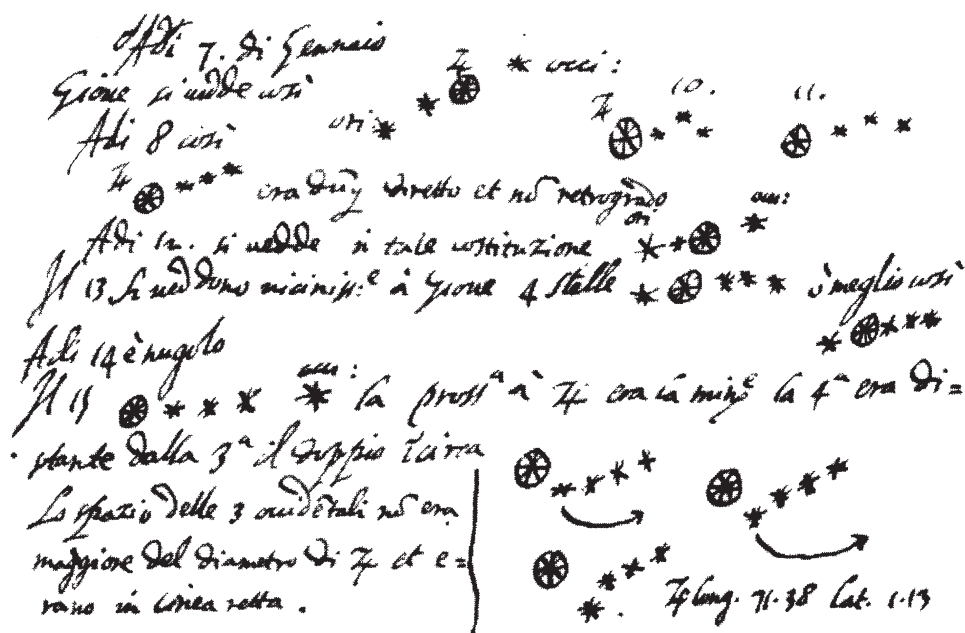 Adi 7. di Gennaio
Giove si vedde così
♃ occi:
ori:
Adi 8 così
♃ 10. 11.
♃ era dūq diretto et nō retrogrado
Adi 12. si vedde in tale costituzione ori: occi:
Il 13 si veddono vicinissᵉ à Giove 4 stelle ò meglio così
Adi 14 è nugolo
Il 15 occi: la prossᵃ à ♃ era la minᵉ la 4ᵃ era di=
stante dalla 3ᵃ il doppio circa
Lo spazio delle 3 occidētali nō era
maggiore del diametro di ♃ et e=
rano in linea retta.
♃ long. 71.38 lat. 1.13